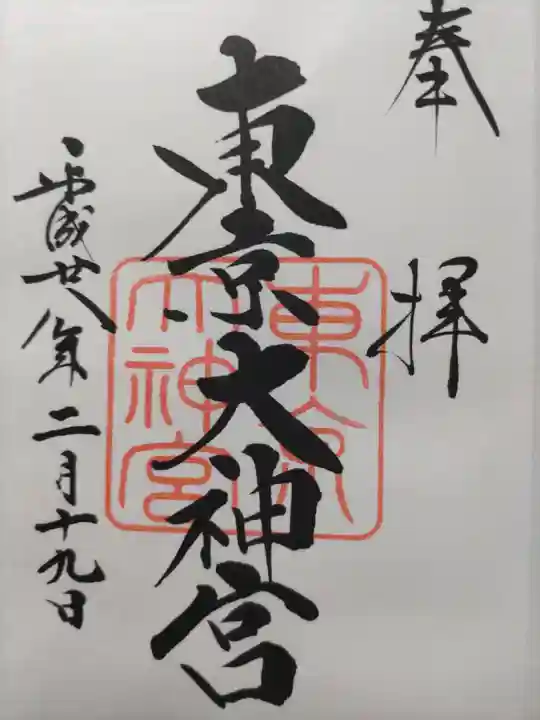 奉拝
東京大神宮
平成廿八年二月十九日
東京大神宮